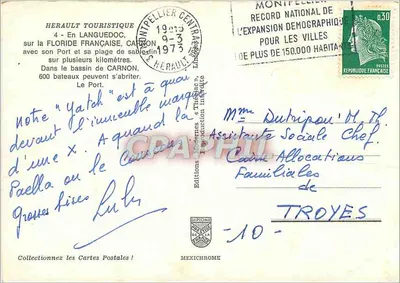 HERAULT TOURISTIQUE
4 - En LANGUEDOC,
sur la FLORIDE FRANÇAISE, CARNON
avec son Port et sa plage de sable fin
sur plusieurs kilomètres.
Dans le bassin de CARNON,
600 bateaux peuvent s'abriter.
Le Port.
MONTPELLIER CENTRAL
19H15
9-3
1973
HERAULT
MONTPELLIER
RECORD NATIONAL DE
L'EXPANSION DEMOGRAPHIQUE
POUR LES VILLES
DE PLUS DE 150.000 HABITANTS
0,30
REPUBLIQUE FRANÇAISE
Notre "Yatch" est à quai
devant l'immeuble marqué
d'une X. A quand la
Paella ou le
Grosses bises Lulu
Editions
Reproduction interdite
CPARAMA
Mme Dutripon M. Th
Assistante Sociale Chef
Caisse Allocations
Familiales
de
TROYES
-10-
Collectionnez les Cartes Postales !
MEXICHROME